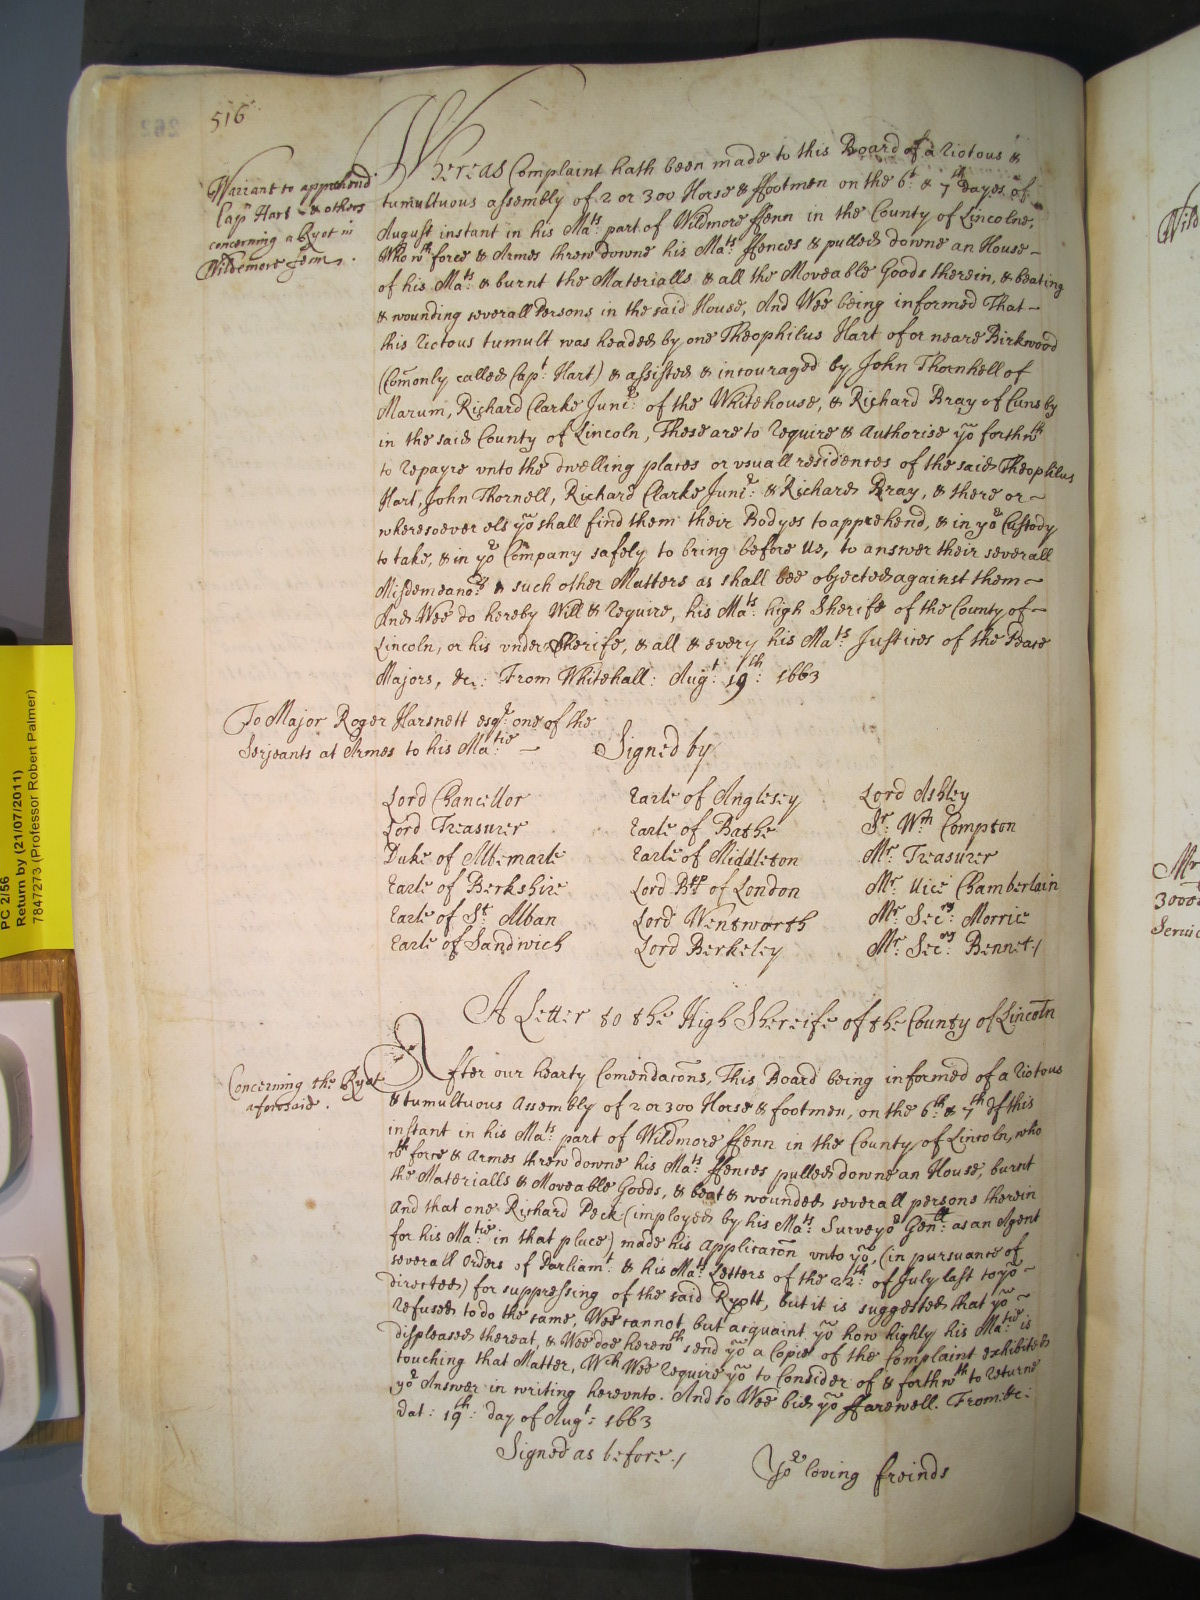 516
Warrant to apprehend
Capn Hart & others
concerning a Ryot in
Wildemore Fenn.
Whereas Complaint hath been made to this Board of a riotous &
tumultuous assembly of 2 or 300 Horse & ffootmen on the 6t & 7th dayes of
August instant in his Mats: part of Wildmore ffenn in the County of Lincolne,
Who wth force & Armes threw downe his Mats: ffences & pulled downe an House –
of his Mats: & burnt the Materialls & all the Moveable Goods therein, & beating
& wounding severall Persons in the said House, And Wee being informed That –
this riotous tumult was headed by one Theophilus Hart of or neare Birkwood
(Comonly called Capt: Hart) & assisted & incouraged by John Thornhell of
Marum, Richard Clarke Junir: of the Whitehouse, & Richard Bray of Cunsby
in the said County of Lincoln, These are to require & Authorise yõ forthwth
to repayre vnto the dwelling places or vsuall residences of the said Theophilus
Hart, John Thornell, Richard Clarke Junir: & Richard Bray, & there or –
wheresoever els yõ shall find them their Bodyes to apprehend, & in yor Custody
to take, & in yor Company safely to bring before Us, to answer their severall
Misdemeanors & such other Matters as shall bee objected against them –
And Wee do hereby Will & require, his Mats: high Sherife of the County of –
Lincoln, or his vnder Sherife, & all & every his Mats: Justices of the Peace
Majors, &c: From Whitehall: Augt: 19th: 1663
To Major Roger Harsnett esqr: one of the
Serjeants at Armes to his Matie: –
Signed by
Lord Chancellor Earle of Anglesey Lord Ashley
Lord Treasurer Earle of Bathe Sr: Wm Compton
Duke of Albemarle Earle of Middleton Mr: Treasurer
Earle of Berkshire Lord Bpp: of London Mr: Vice Chamberlain
Earle of St: Alban Lord Wentworth Mr: Secry: Morrice
Earle of Sandwich Lord Berkeley Mr: Secry: Bennet/
A Letter to the High Shereife of the County of Lincoln
Concerning the Ryot
aforesaid.
After our hearty Comendacõns, This Board being informed of a riotous
& tumultuous Assembly of 2 or 300 Horse & footmen, on the 6th: & 7th of this
instant in his Mats: part of Wildmore ffenn in the County of Lincoln, who
wth force & Armes threw downe his Mats: ffences pulled downe an House, burnt
the Materialls & Moveable Goods, & beat & wounded severall persons therein
And that one Richard Peck (imployed by his Mats: Surveyor Genll: as an Agent
for his Matie: in that place) made his applicacõn vnto yõ, (in pursuance of
severall Orders of Parliamt: & his Mats: Letters of the 22th: of July last to yõ –
directed) for suppressing of the said Ryott, but it is suggested that yõ –
refused to do the same, Wee cannot but acquaint yõ how highly his Matie: is
displeased thereat, & Wee doe herewth send yõ a Copie of the Complaint exhibited
touching that Matter, Wch Wee require yõ to Consider of & forthwth to returne
yor Answer in writing herevnto. And so Wee bid yõ ffarewell. From: &c:
Dat: 19th: day of Augt: 1663
Signed as before/
Yor loving freinds
PC 2/56
Return by (21/07/2011)
7847273 (Professor Robert Palmer)
Wild
Mr